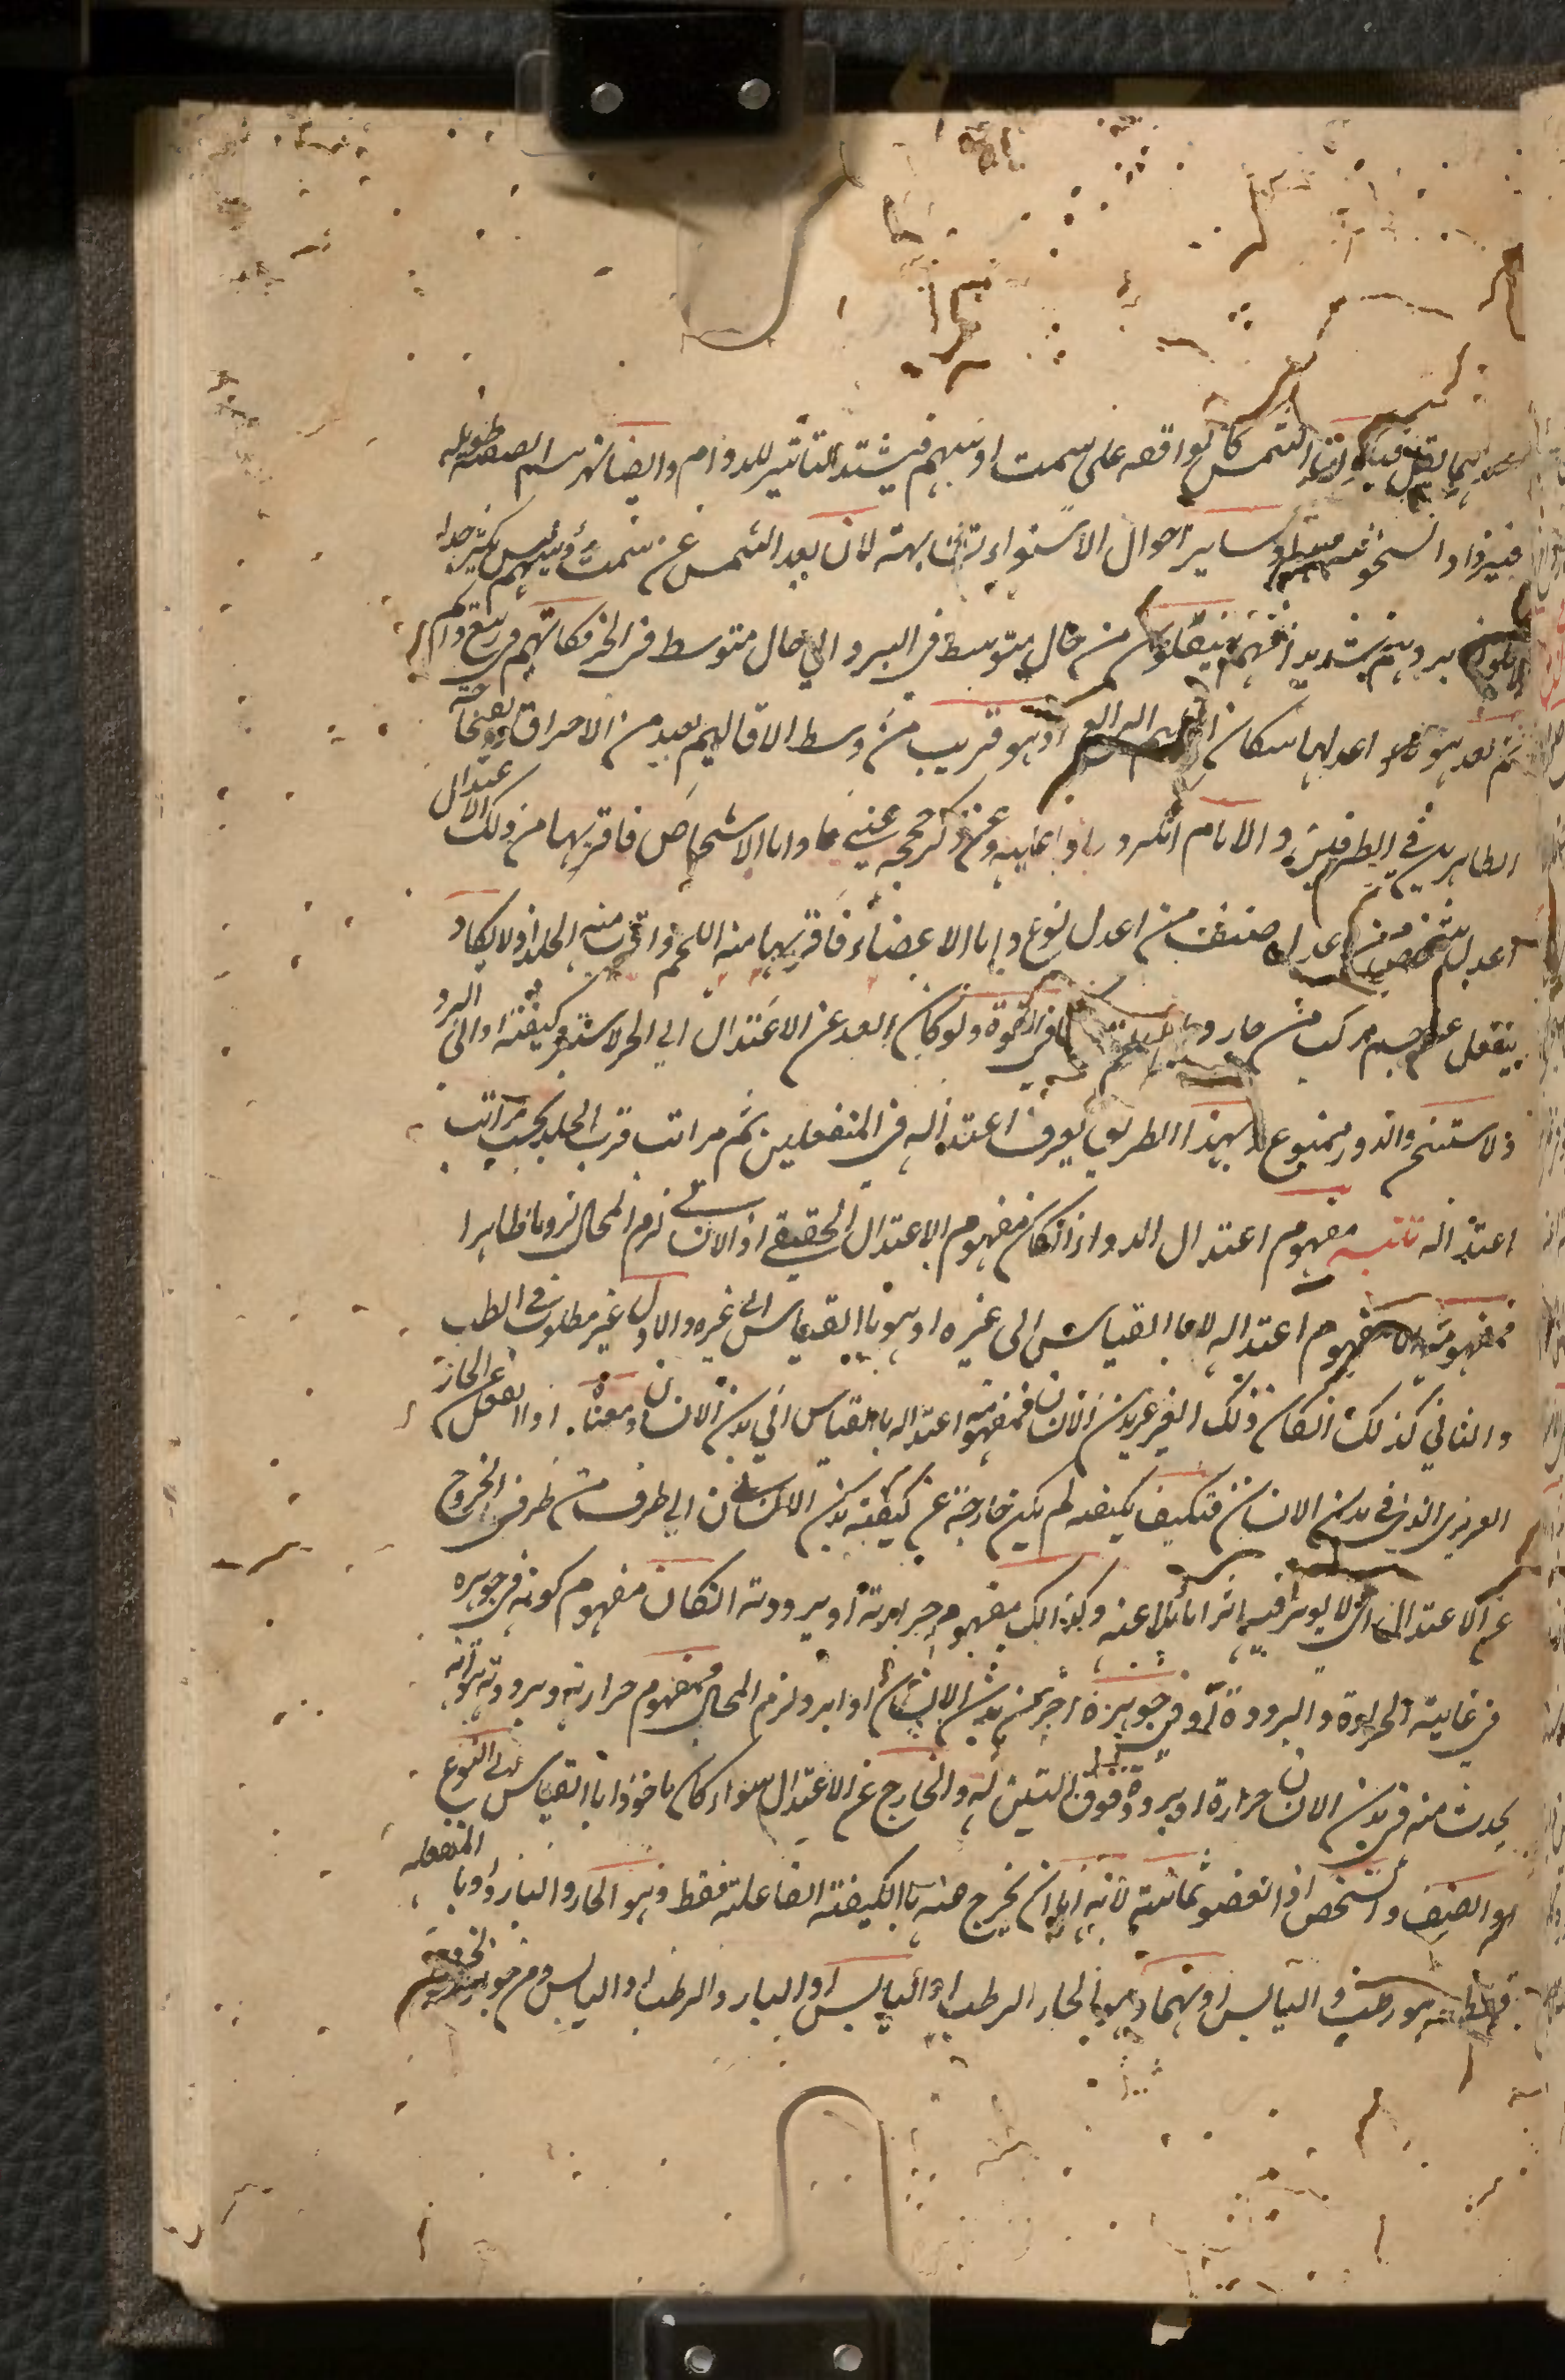 الشمس كالواقفه على سمت رؤسهم فيشتد التاثير للدوام وايضا نهرهم الصيفيه طويله
فيزداد السخونة وساير احوال الاستواء متشابهة لان بعد الشمس عن سمت رؤسهم ليس بكثير جدا
بردهم شديد انهم ينتقلون من حال متوسط في البرد الى حال متوسط في الحر فكانهم في ربيع دائم
ثم بعد هؤلاء اعدلها سكان الاقليم الرابع اذ هو قريب من وسط الاقاليم بعيد من الاحراق والفجاجة
الظاهرين في الطرفين والامام انكر وعن ذكر حجج عنينا واما الاشخاص فاقربها من ذلك الاعتدال
اعدل شخص من اعدل صنف من اعدل نوع واما الاعضاء فاقربها منه اللحم واقرب منه الجلد اذ لا يكاد
ينفعل عن جسم مركب من حار وبارد في القوة ولو كان ابعد عن الاعتدال الى الحر لاستبرد كيفيته او الى البرد
لاستسخن والدور ممنوع بهذا الطريق يعرف اعتداله في المنفعلين ثم مراتب قرب الجلد بحسب مراتب
اعتداله تنبيه مفهوم اعتدال الدواء ان كان مفهوم الاعتدال الحقيقي او الانساني لزم المحال لزوما ظاهرا
فمفهومه مفهوم اعتداله لا بالقياس الى غيره او هو بالقياس الى غيره والاول غير مطلوب في الطب
والثاني كذلك ان كان ذلك الغير غير بدن الانسان فمفهومه اعتداله بالقياس الى بدن الانسان ومعناه اذا انفعل عن الحار
الغريزي الذي في بدن الانسان فتكيف بكيفيه لم يكن خارجة عن كيفية بدن الانسان الى طرف من طرفي الخروج
عن الاعتدال اي لا يوثر فيه اثرا مائلا عنه وكذلك مفهوم حرارته او برودته ان كان مفهوم كونه في جوهره
في غاية الحرارة والبرودة او في جوهره احر من بدن الانسان او ابرد لزم المحال فمفهوم حرارته وبرودته هو انه
يحدث منه في بدن الانسان حرارة او برودة فوق التي له والخارج عن الاعتدال سواء كان ماخوذا بالقياس الى النوع
او الصنف والشخص او العضو ثمانية لانه اما ان يخرج عنه بالكيفية الفاعلة فقط وهو الحار والبارد او بالمنفعله
فقط وهو رطب واليابس او بهما وهو الحار الرطب او اليابس او البارد الرطب او اليابس ومن جوز